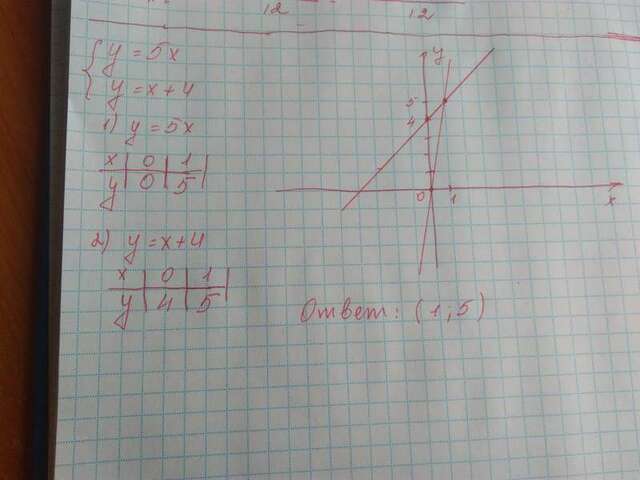 12 12
{ y = 5x
y = x + 4
1) y = 5x
x | 0 | 1 |
y | 0 | 5 |
2) y = x + 4
x | 0 | 1 |
y | 4 | 5 |
y
5
4
0 1 x
Ответ: (1; 5)